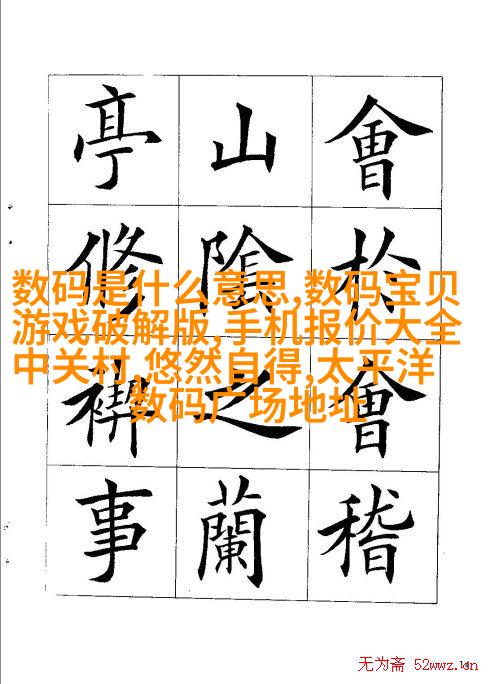 會於會稽
山陰之蘭
亭修禊事
数码是什么意思,数码宝贝
游戏破解版,手机报价大全
中关村,悠然自得,太平洋
数码广场地址
无为斋 52wwz.cn